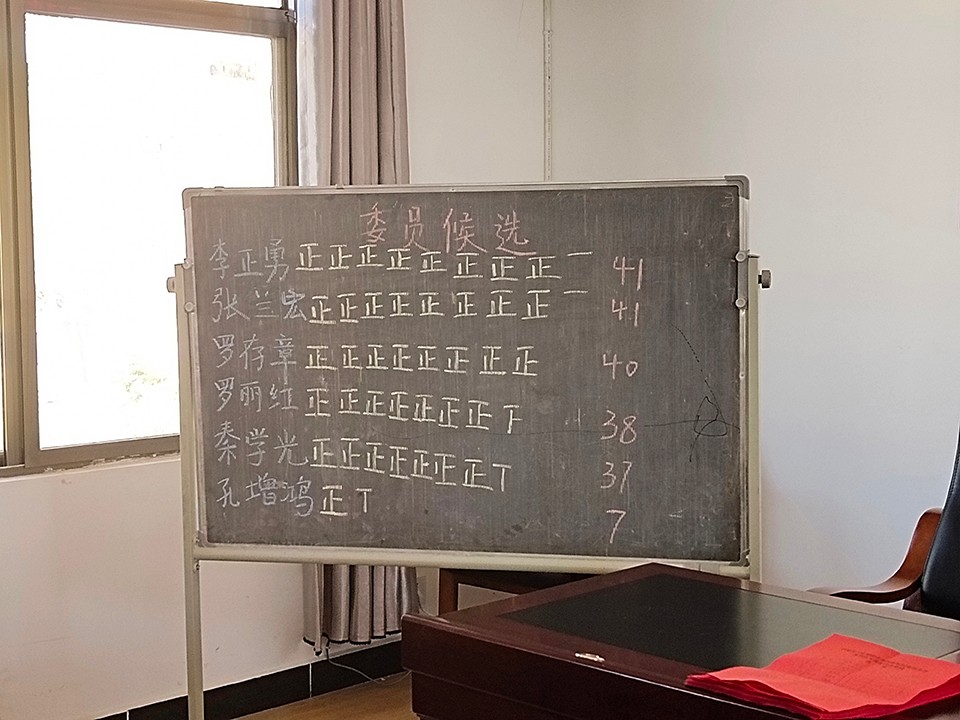 委员候选
李正勇 正正正正正正正正一 41
张兰宏 正正正正正正正正一 41
罗存章 正正正正正正正正 40
罗丽红 正正正正正正正下 38
秦学光 正正正正正正正丅 37
孔增鸿 正丅 7